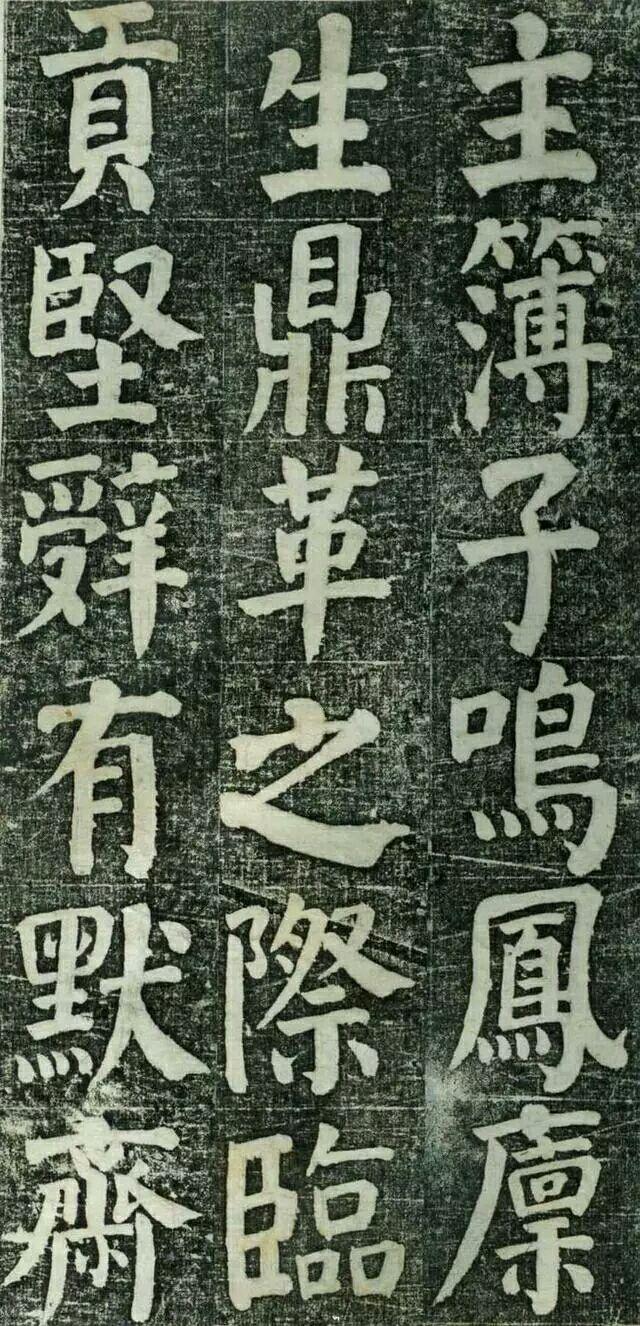 主簿子鳴鳳廩
生鼎革之際臨
貢堅辭有默齋